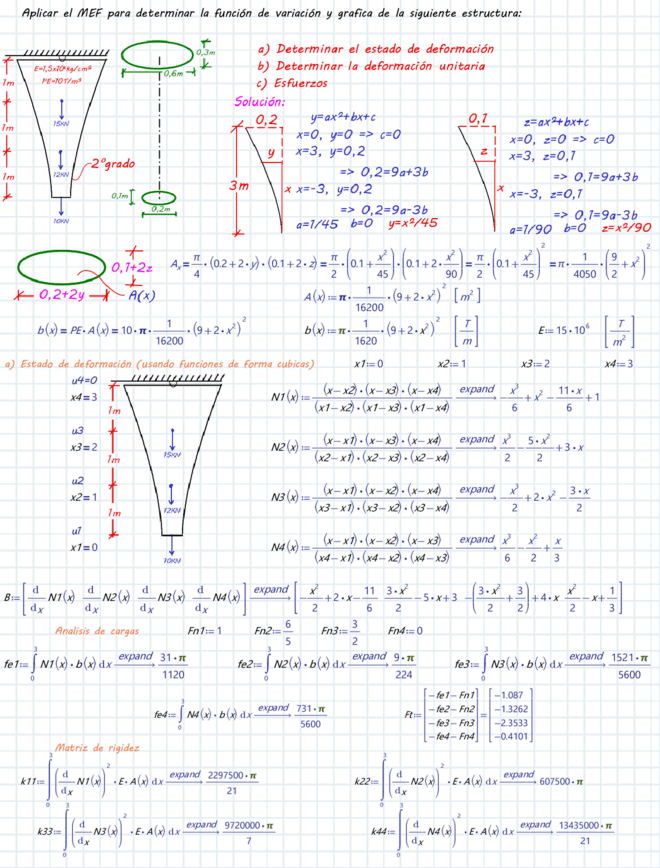 Aplicar el MEF para determinar la función de variación y grafica de la siguiente estructura:
E=1,5x10⁶kg/cm²
PE=10T/m³
1m
1m
1m
15KN
12KN
10KN
2°grado
0,3m
0,6m
0,1m
0,2m
a) Determinar el estado de deformación
b) Determinar la deformación unitaria
c) Esfuerzos
Solución:
0,2
y
3m
x
y=ax²+bx+c
x=0, y=0 => c=0
x=3, y=0,2
=> 0,2=9a+3b
x=-3, y=0,2
=> 0,2=9a-3b
a=1/45 b=0 y=x²/45
0,1
z
x
z=ax²+bx+c
x=0, z=0 => c=0
x=3, z=0,1
=> 0,1=9a+3b
x=-3, z=0,1
=> 0,1=9a-3b
a=1/90 b=0 z=x²/90
0,1+2z
0,2+2y
A(x)
Aₓ = π/4 · (0.2+2·y) · (0.1+2·z) = π/2 · (0.1 + x²/45) · (0.1+2· x²/90) = π/2 · (0.1 + x²/45)² = π · 1/4050 · (9/2 + x²)²
A(x) := π · 1/16200 · (9+2·x²)² [m²]
b(x) = PE·A(x) = 10·π· 1/16200 · (9+2·x²)²
b(x) := π · 1/1620 · (9+2·x²)² [T/m]
E := 15·10⁶ [T/m²]
a) Estado de deformación (usando funciones de forma cubicas)
x1:=0 x2:=1 x3:=2 x4:=3
u4=0
x4=3
u3
x3=2
u2
x2=1
u1
x1=0
1m
1m
1m
15KN
12KN
10KN
N1(x) := (x−x2)·(x−x3)·(x−x4) / (x1−x2)·(x1−x3)·(x1−x4) expand → −x³/6 + x² − 11·x/6 + 1
N2(x) := (x−x1)·(x−x3)·(x−x4) / (x2−x1)·(x2−x3)·(x2−x4) expand → x³/2 − 5·x²/2 + 3·x
N3(x) := (x−x1)·(x−x2)·(x−x4) / (x3−x1)·(x3−x2)·(x3−x4) expand → −x³/2 + 2·x² − 3·x/2
N4(x) := (x−x1)·(x−x2)·(x−x3) / (x4−x1)·(x4−x2)·(x4−x3) expand → x³/6 − x²/2 + x/3
B := [d/dx N1(x) d/dx N2(x) d/dx N3(x) d/dx N4(x)] expand → [−x²/2 + 2·x − 11/6 3·x²/2 − 5·x + 3 −(3·x²/2 + 3/2) + 4·x x²/2 − x + 1/3]
Analisis de cargas
Fn1:=1 Fn2:= 6/5 Fn3:= 3/2 Fn4:=0
fe1:= ∫₀³ N1(x)·b(x) dx expand → 31·π/1120
fe2:= ∫₀³ N2(x)·b(x) dx expand → 9·π/224
fe3:= ∫₀³ N3(x)·b(x) dx expand → 1521·π/5600
fe4:= ∫₀³ N4(x)·b(x) dx expand → 731·π/5600
Ft:= [−fe1−Fn1 −fe2−Fn2 −fe3−Fn3 −fe4−Fn4] = [−1.087 −1.3262 −2.3533 −0.4101]
Matriz de rigidez
k11:= ∫₀³ (d/dx N1(x))² ·E·A(x) dx expand → 2297500·π/21
k22:= ∫₀³ (d/dx N2(x))² ·E·A(x) dx expand → 607500·π
k33:= ∫₀³ (d/dx N3(x))² ·E·A(x) dx expand → 9720000·π/7
k44:= ∫₀³ (d/dx N4(x))² ·E·A(x) dx expand → 13435000·π/21